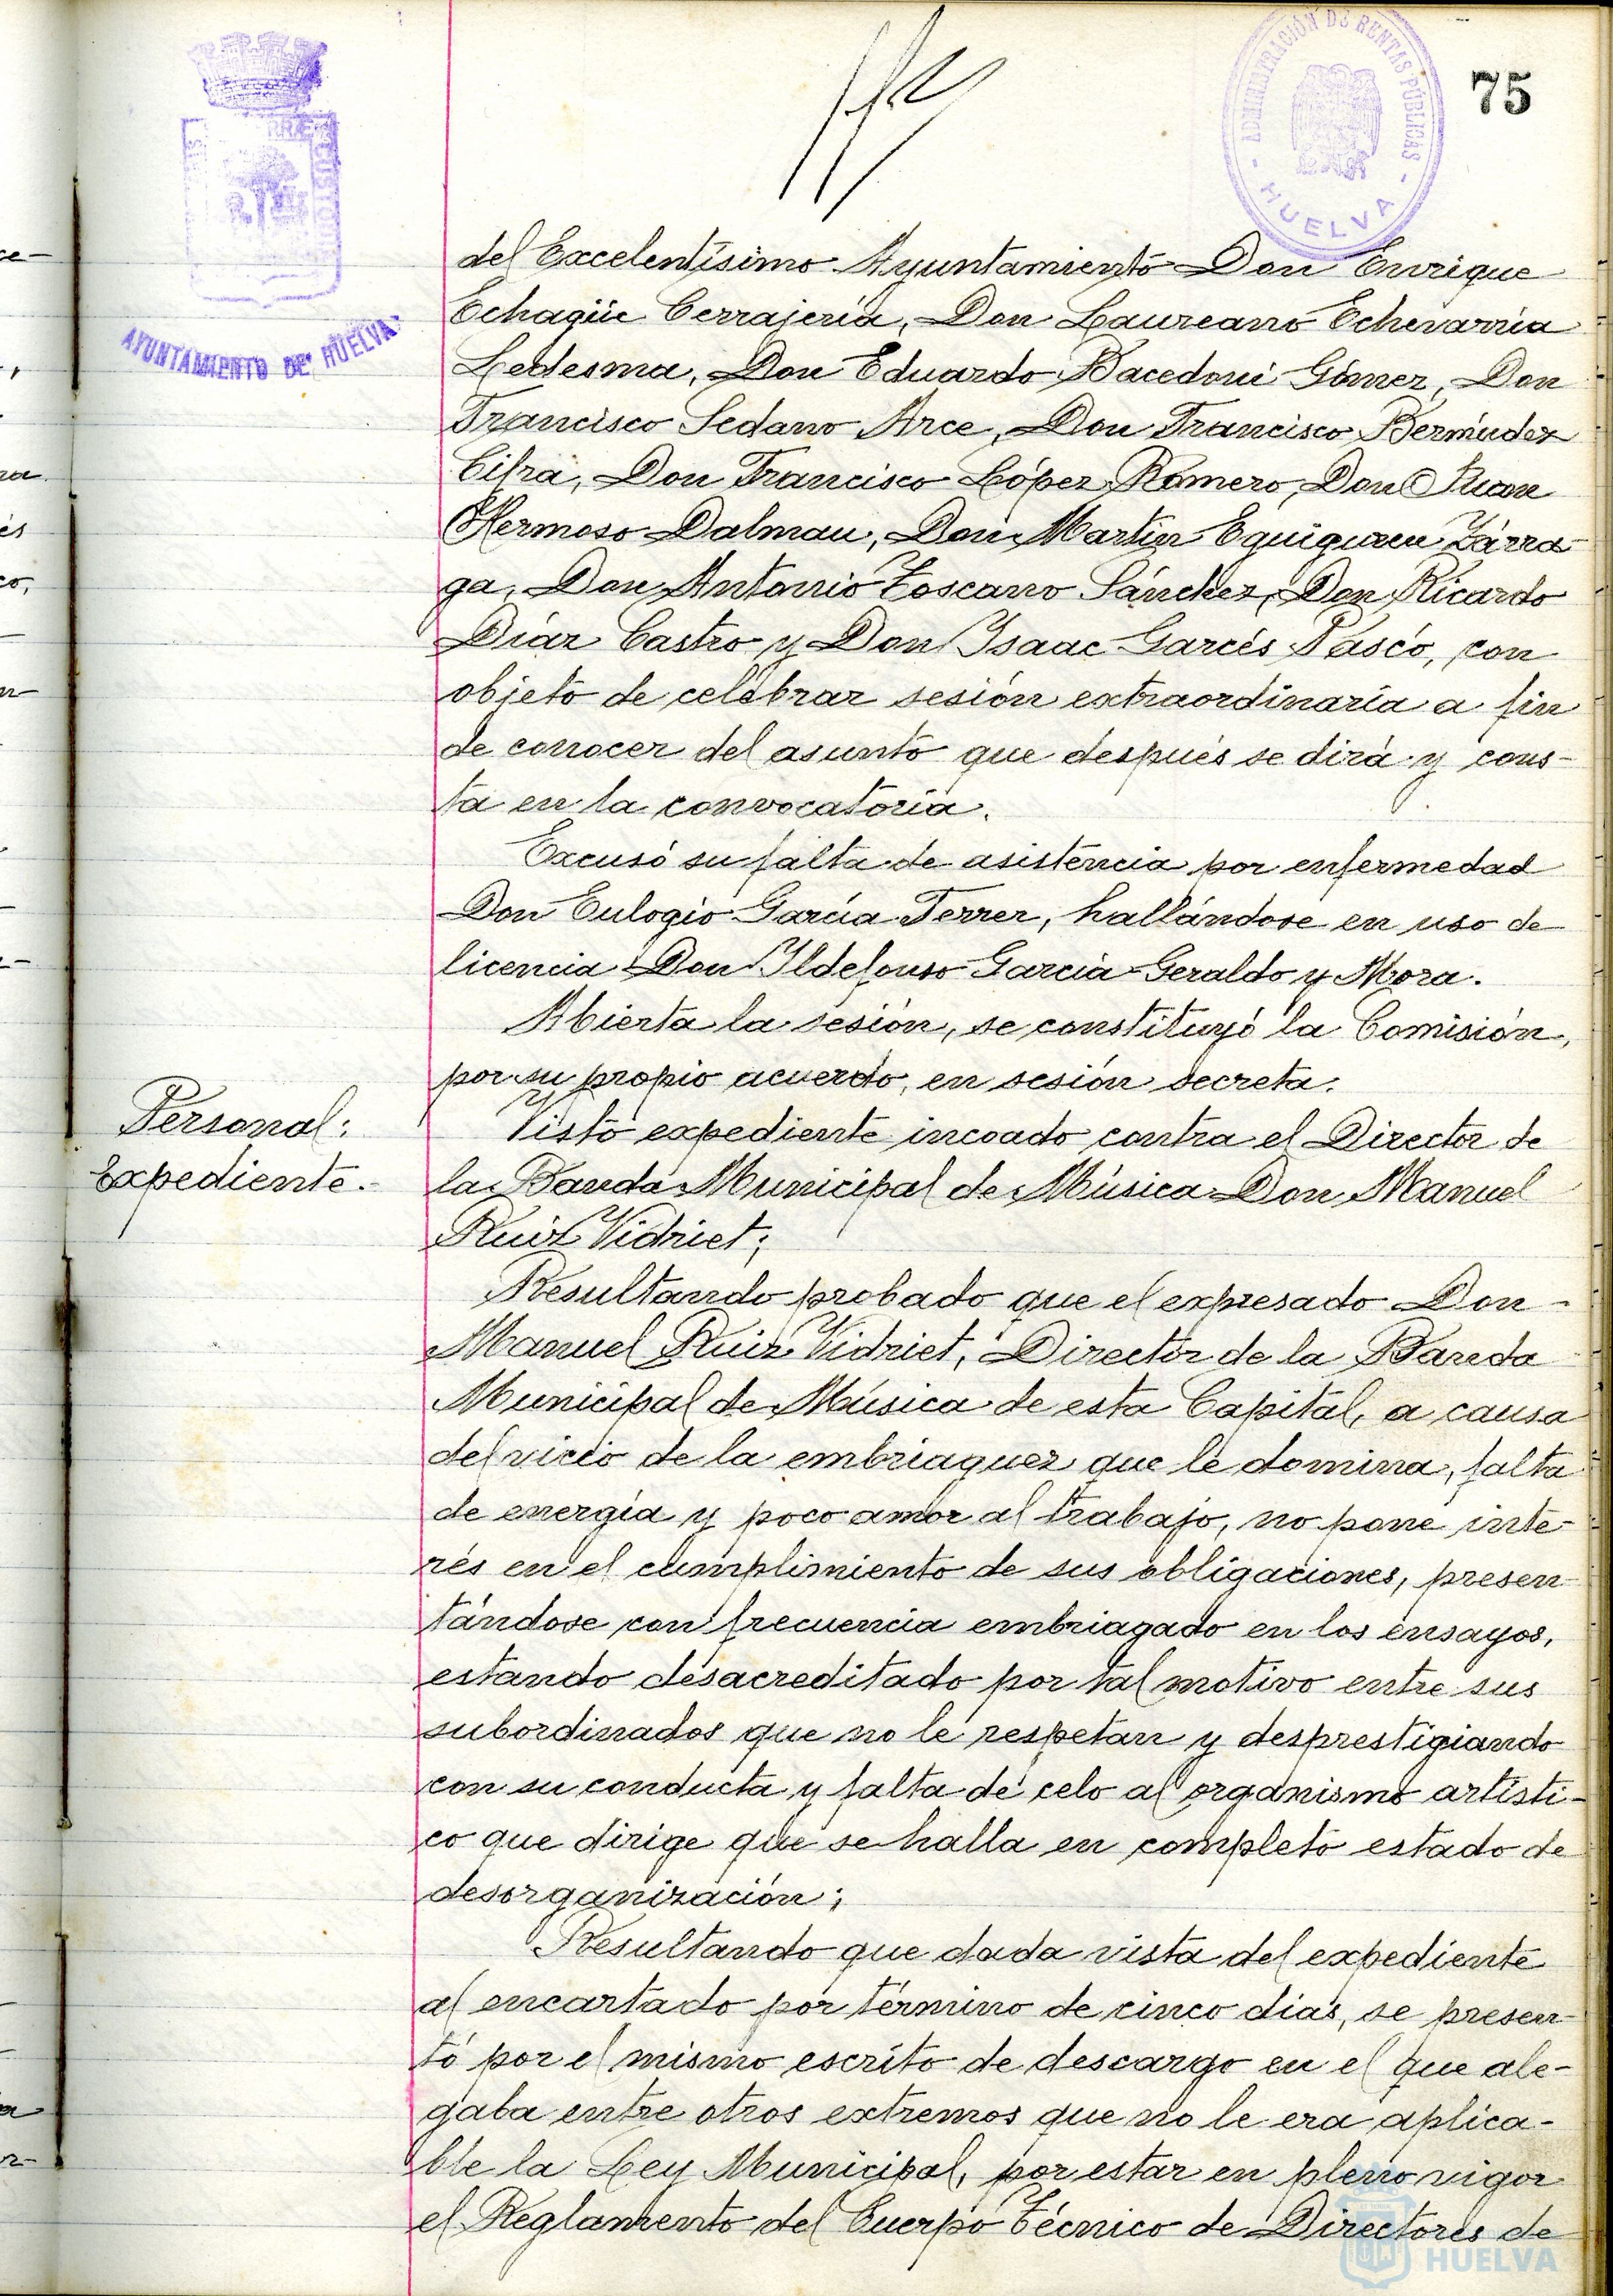 75
ADMINISTRACIÓN DE RENTAS PÚBLICAS
- HUELVA -
AYUNTAMIENTO DE HUELVA
del Excelentísimo Ayuntamiento Don Enrique
Echagüe Cerrajería, Don Laureano Echevarría
Ledesma, Don Eduardo Bacedoni Gómez, Don
Francisco Sedano Arce, Don Francisco Bermúdez
Cifra, Don Francisco López Romero, Don Juan
Hermoso Dalmau, Don Martín Eguiguren Zárra-
ga, Don Antonio Toscano Sánchez, Don Ricardo
Díaz Castro y Don Isaac Garcés Pasco, con
objeto de celebrar sesión extraordinaria a fin
de conocer del asunto que después se dirá y cons-
ta en la convocatoria.
Excusó su falta de asistencia por enfermedad
Don Eulogio García Ferrer, hallándose en uso de
licencia Don Ildefonso García Geraldo y Mora.
Abierta la sesión, se constituyó la Comisión,
por su propio acuerdo, en sesión secreta.
Personal:
Expediente.-
Visto expediente incoado contra el Director de
la Banda Municipal de Música Don Manuel
Ruiz Vidriet;
Resultando probado que el expresado Don -
Manuel Ruiz Vidriet, Director de la Banda
Municipal de Música de esta Capital, a causa
del vicio de la embriaguez que le domina, falta
de energía y poco amor al trabajo, no pone inte-
rés en el cumplimiento de sus obligaciones, presen-
tándose con frecuencia embriagado en los ensayos,
estando desacreditado por tal motivo entre sus
subordinados que no le respetan y desprestigiando
con su conducta y falta de celo al organismo artísti-
co que dirige que se halla en completo estado de
desorganización;
Resultando que dada vista del expediente
al encartado por término de cinco días, se presen-
tó por el mismo escrito de descargo en el que ale-
gaba entre otros extremos que no le era aplica-
ble la Ley Municipal, por estar en pleno vigor
el Reglamento del Cuerpo Técnico de Directores de
HUELVA